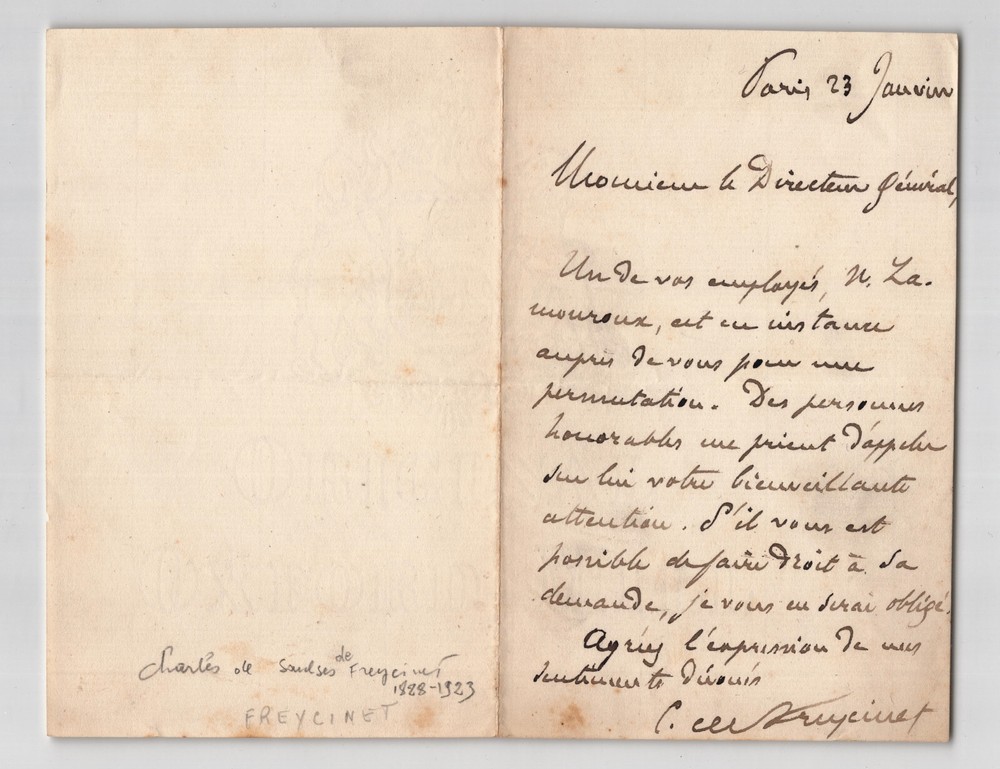 Charles de Saulses de Freycinet
1828-1923
FREYCINET
Paris 23 Janvier
Monsieur le Directeur Général,
Un de vos employés, M. La-
mouroux, est en instance
auprès de vous pour une
permutation. Des personnes
honorables me prient d'appeler
sur lui votre bienveillante
attention. S'il vous est
possible de faire droit à sa
demande, je vous en serai obligé.
Agréez l'expression de mes
sentiments dévoués
C. de Freycinet